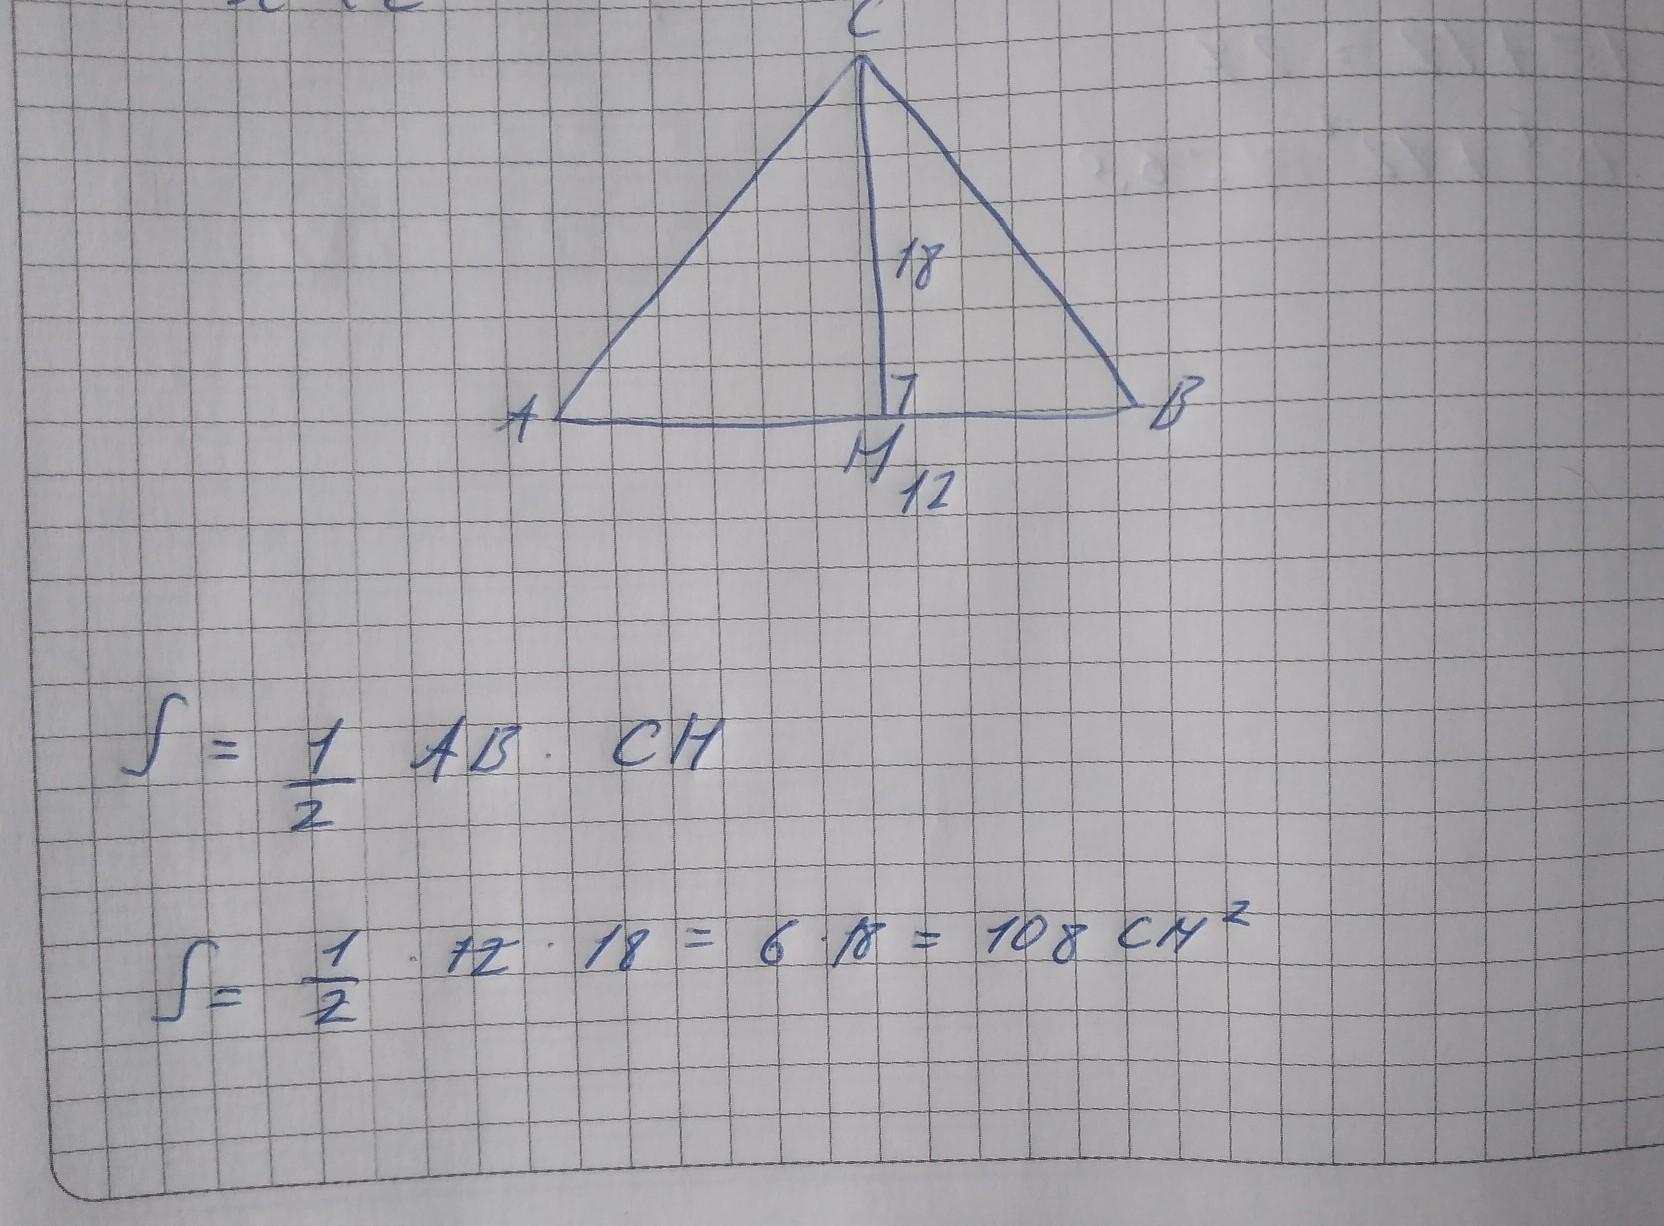 C
18
A
B
H
12
S = 1/2 AB · CH
S = 1/2 · 12 · 18 = 6 · 18 = 108 см²